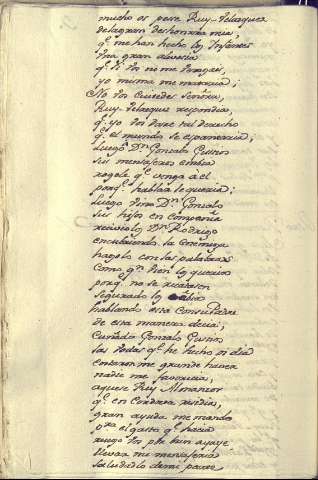 mucho os pese Ruy-Velazquez
de la gran deshonra mia,
q.e me han hecho los Infantes
una gran alevosia
q.e si vos no me vengais,
yo misma me mataria;
No vos cuitedes señora,
Ruy Velazquez respondia,
q.e yo vos dare tal derecho
q.e el mundo se espantaria;
luego a D.n Gonzalo Gustos
sus mensajeros embia
rogole q.e venga a el
porq.e hablar le queria;
luego vino D.n Gonzalo
sus hijos en compañia
recivelos D.n Rodrigo
encubriendo la enemiga
hazelo con sus palabras
como q.e bien los queria
porq.e no se recatasen
segurado los habia
hablando esta con su Padre
de esta manera decia;
Cuñado Gonzalo Gustos,
las bodas q.e he fecho oi dia
costaron me grande haver
nadie me favorecia,
aquese Rey Almanzor
q.e en Cordova residia,
gran ayuda me mando
p.ra el gasto q.e hacia
ruego vos por bien ayais
llevar mi mensajeria
saludadlo de mi parte